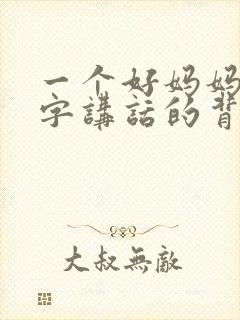 一个好妈妈
字講話的背
大叔無敵